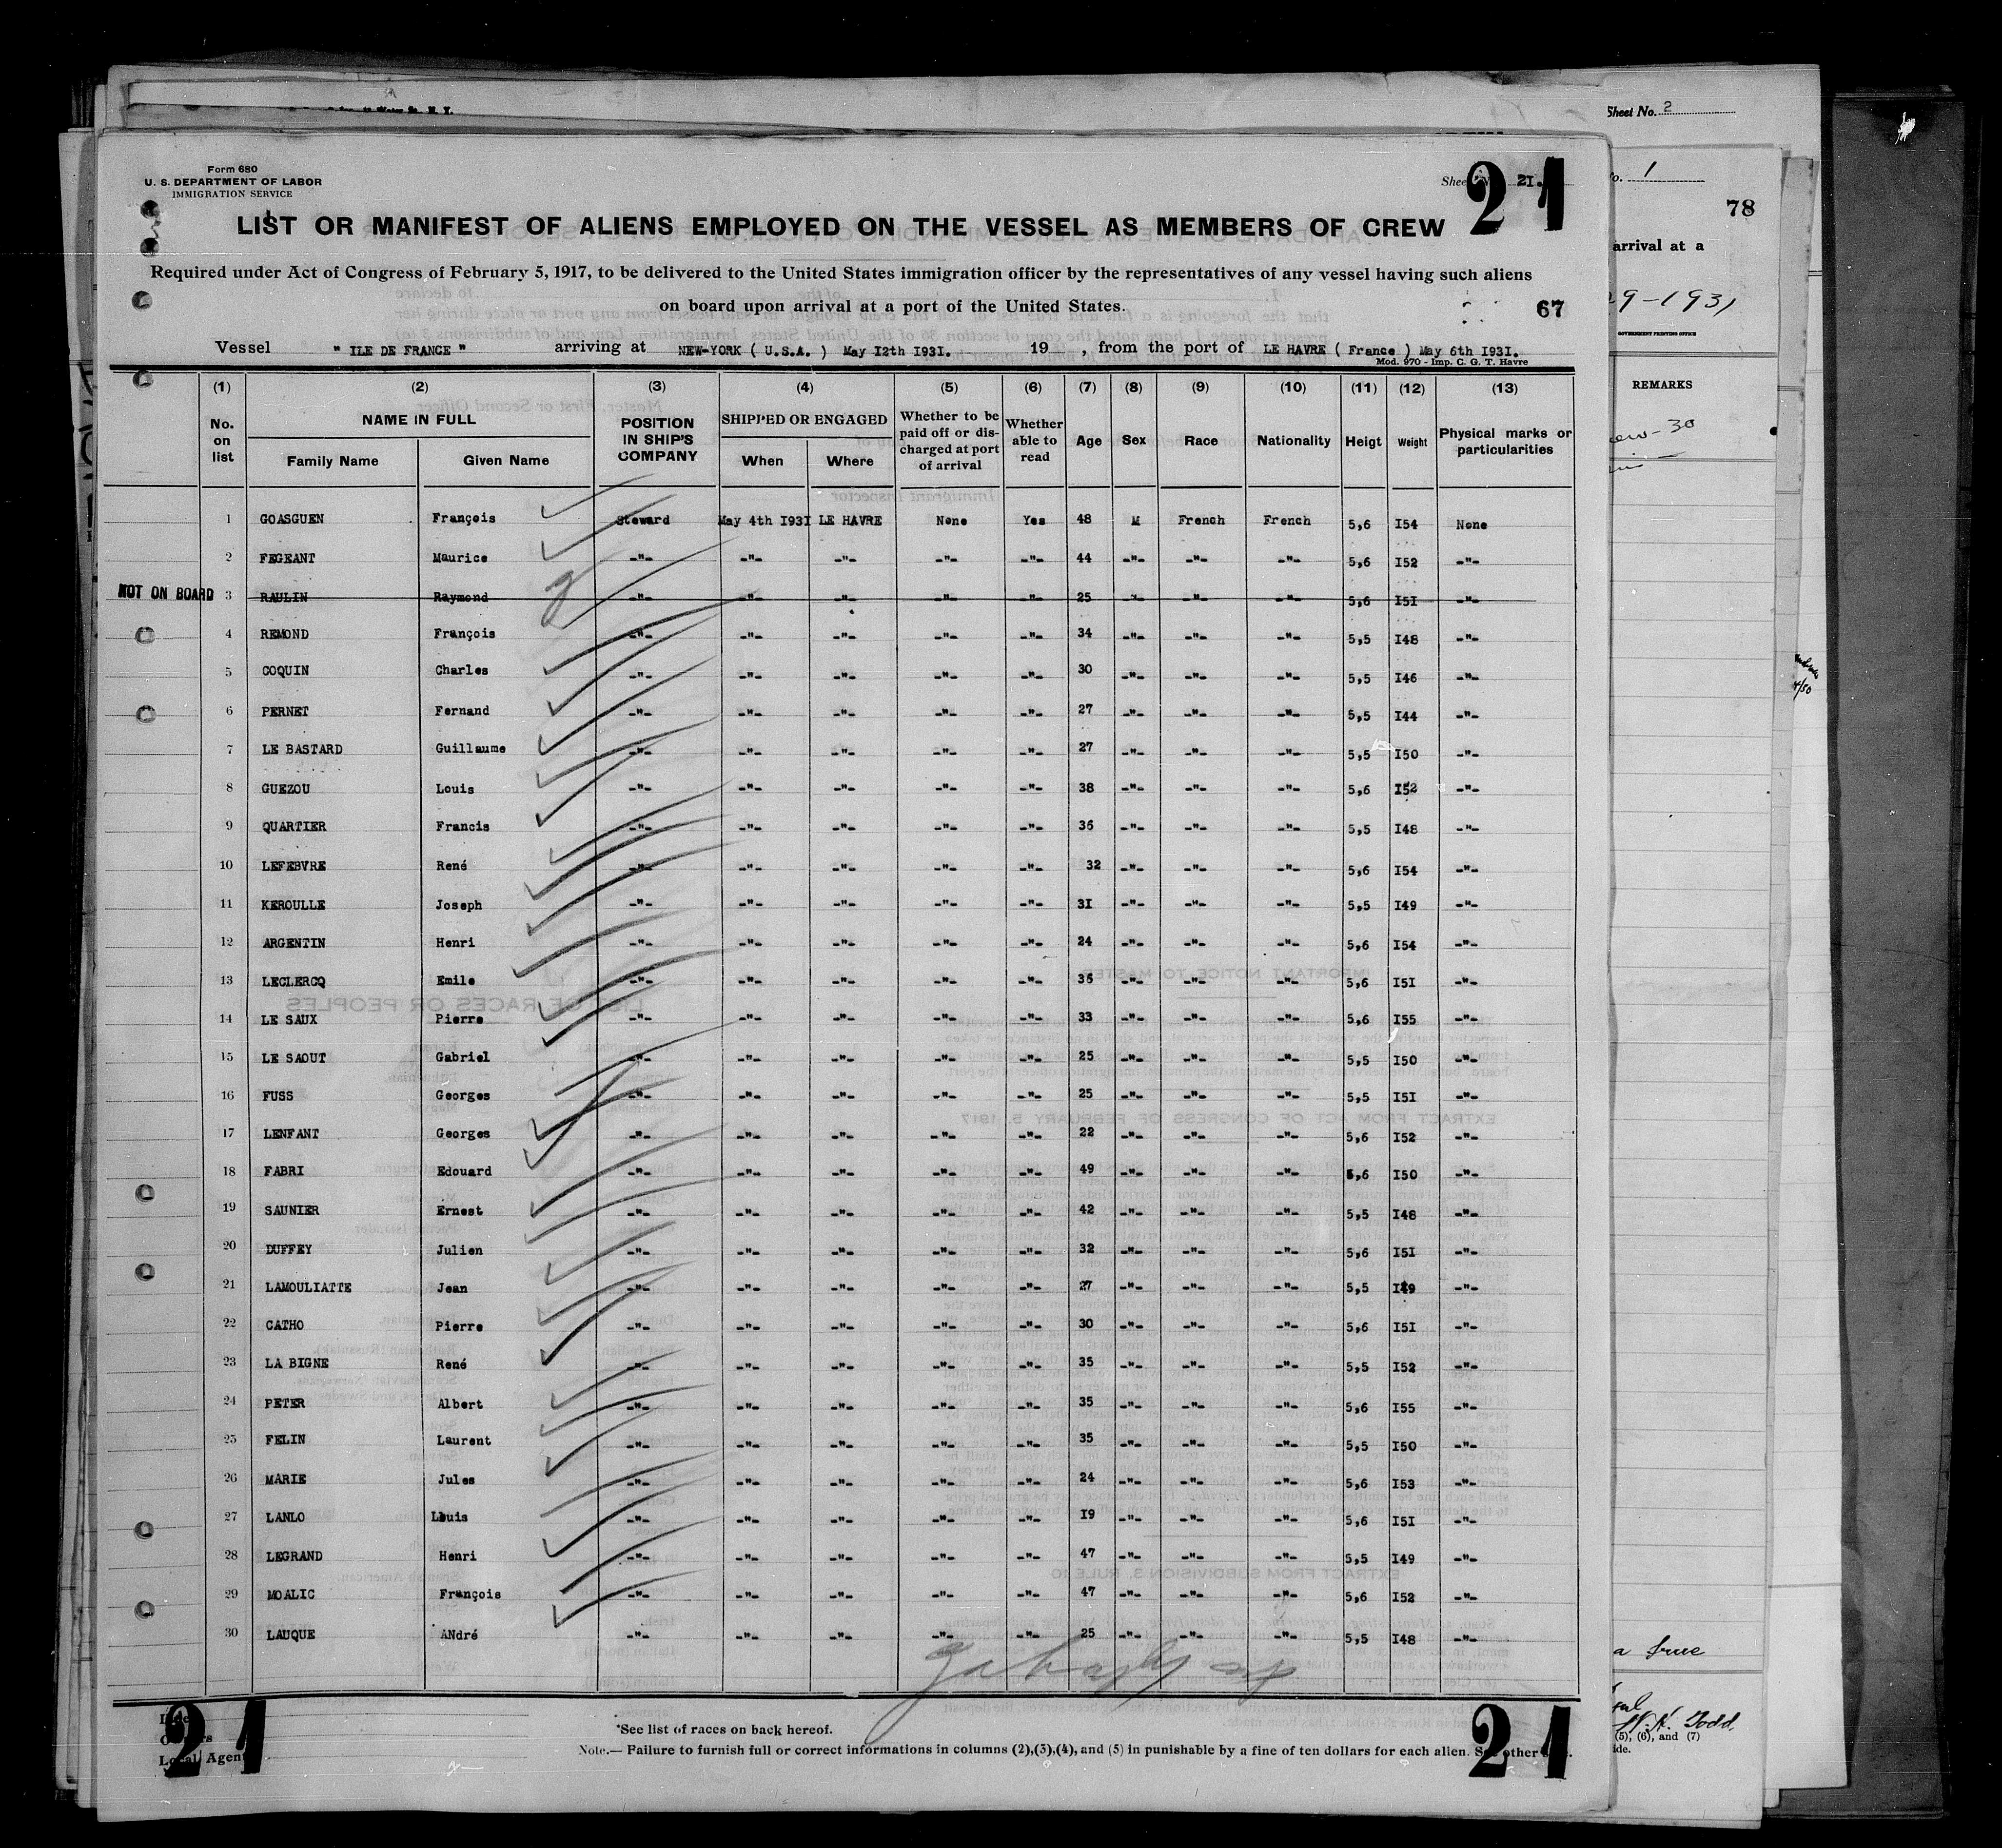 Sheet No. 2
Form 680
U. S. DEPARTMENT OF LABOR
IMMIGRATION SERVICE
21.
21
1
78
LIST OR MANIFEST OF ALIENS EMPLOYED ON THE VESSEL AS MEMBERS OF CREW
arrival at a
Required under Act of Congress of February 5, 1917, to be delivered to the United States immigration officer by the representatives of any vessel having such aliens
on board upon arrival at a port of the United States.
67
29-1931
GOVERNMENT PRINTING OFFICE
Vessel " ILE DE FRANCE " arriving at NEW-YORK ( U.S.A. ) May I2th I93I. 19 , from the port of LE HAVRE ( France ) May 6th I93I.
Mod. 970 - Imp. C. G. T. Havre
(1) (2) (3) (4) (5) (6) (7) (8) (9) (10) (11) (12) (13)
REMARKS
No. on list NAME IN FULL Family Name Given Name POSITION IN SHIP'S COMPANY SHIPPED OR ENGAGED When Where Whether to be paid off or discharged at port of arrival Whether able to read Age Sex Race Nationality Heigt Weight Physical marks or particularities
1 GOASGUEN François Steward May 4th I93I LE HAVRE None Yes 48 M French French 5,6 I54 None
2 FEGEANT Maurice -"- -"- -"- -"- -"- 44 -"- -"- -"- 5,6 I52 -"-
NOT ON BOARD 3 RAULIN Raymond -"- -"- -"- -"- -"- 25 -"- -"- -"- 5,6 I5I -"-
4 REMOND François -"- -"- -"- -"- -"- 34 -"- -"- -"- 5,5 I48 -"-
5 COQUIN Charles -"- -"- -"- -"- -"- 30 -"- -"- -"- 5,5 I46 -"-
6 PERNET Fernand -"- -"- -"- -"- -"- 27 -"- -"- -"- 5,5 I44 -"-
7 LE BASTARD Guillaume -"- -"- -"- -"- -"- 27 -"- -"- -"- 5,5 I50 -"-
8 GUEZOU Louis -"- -"- -"- -"- -"- 38 -"- -"- -"- 5,6 I52 -"-
9 QUARTIER Francis -"- -"- -"- -"- -"- 36 -"- -"- -"- 5,5 I48 -"-
10 LEFEBVRE René -"- -"- -"- -"- -"- 32 -"- -"- -"- 5,6 I54 -"-
11 KEROULLE Joseph -"- -"- -"- -"- -"- 3I -"- -"- -"- 5,5 I49 -"-
12 ARGENTIN Henri -"- -"- -"- -"- -"- 24 -"- -"- -"- 5,6 I54 -"-
13 LECLERCQ Emile -"- -"- -"- -"- -"- 36 -"- -"- -"- 5,6 I5I -"-
14 LE SAUX Pierre -"- -"- -"- -"- -"- 33 -"- -"- -"- 5,6 I55 -"-
15 LE SAOUT Gabriel -"- -"- -"- -"- -"- 25 -"- -"- -"- 5,5 I50 -"-
16 FUSS Georges -"- -"- -"- -"- -"- 25 -"- -"- -"- 5,5 I5I -"-
17 LENFANT Georges -"- -"- -"- -"- -"- 22 -"- -"- -"- 5,6 I52 -"-
18 FABRI Edouard -"- -"- -"- -"- -"- 49 -"- -"- -"- 5,6 I50 -"-
19 SAUNIER Ernest -"- -"- -"- -"- -"- 42 -"- -"- -"- 5,5 I48 -"-
20 DUFFEY Julien -"- -"- -"- -"- -"- 32 -"- -"- -"- 5,6 I5I -"-
21 LAMOULIATTE Jean -"- -"- -"- -"- -"- 27 -"- -"- -"- 5,5 I49 -"-
22 CATHO Pierre -"- -"- -"- -"- -"- 30 -"- -"- -"- 5,6 I5I -"-
23 LA BIGNE René -"- -"- -"- -"- -"- 35 -"- -"- -"- 5,5 I52 -"-
24 PETER Albert -"- -"- -"- -"- -"- 35 -"- -"- -"- 5,6 I55 -"-
25 FELIN Laurent -"- -"- -"- -"- -"- 35 -"- -"- -"- 5,5 I50 -"-
26 MARIE Jules -"- -"- -"- -"- -"- 24 -"- -"- -"- 5,6 I53 -"-
27 LANLO Louis -"- -"- -"- -"- -"- I9 -"- -"- -"- 5,6 I5I -"-
28 LEGRAND Henri -"- -"- -"- -"- -"- 47 -"- -"- -"- 5,5 I49 -"-
29 MOALIC François -"- -"- -"- -"- -"- 47 -"- -"- -"- 5,6 I52 -"-
30 LAUQUE ANdré -"- -"- -"- -"- -"- 25 -"- -"- -"- 5,5 I48 -"-
a true
W. H. Todd.
(5), (6), and (7)
21
21
*See list of races on back hereof.
Local Agent
Note.— Failure to furnish full or correct informations in columns (2),(3),(4), and (5) in punishable by a fine of ten dollars for each alien. See other